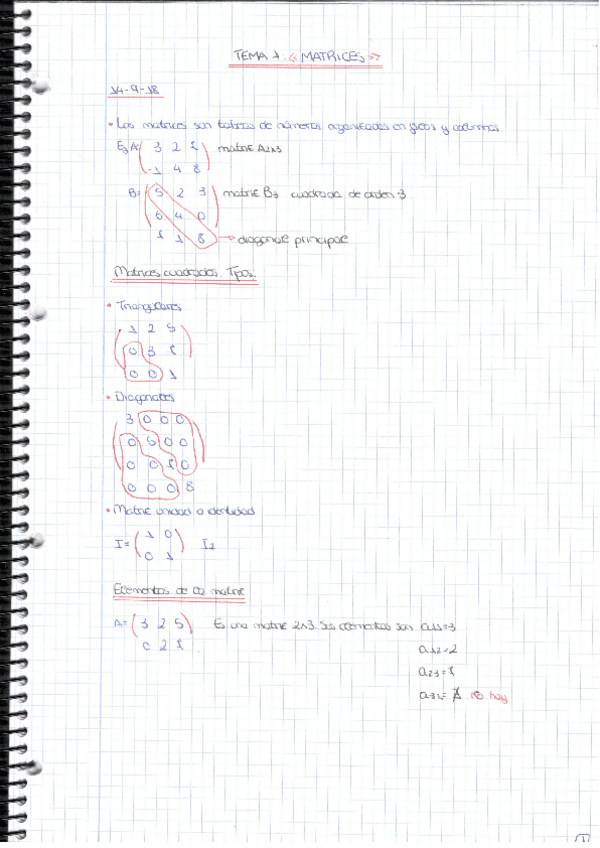 TEMA 1: «MATRICES»
14-9-18
• Las matrices son tablas de números organizados en filas y columnas.
Ej A= ( 3 2 1 matriz A2x3
-1 4 8 )
B= ( 5 2 3 ) matriz B3 cuadrada de orden 3
6 4 0
1 1 8 → diagonal principal
Matrices cuadradas. Tipos.
• Triangulares
( 1 2 5 )
0 3 1
0 0 1
• Diagonales
( 3 0 0 0 )
0 5 0 0
0 0 1 0
0 0 0 8
• Matriz unidad o identidad
I= ( 1 0 ) I2
0 1
Elementos de la matriz
A= ( 3 2 5 ) Es una matriz 2x3. Sus elementos son a11=3
0 2 1 a12=2
a23=1
∄ no hay
1